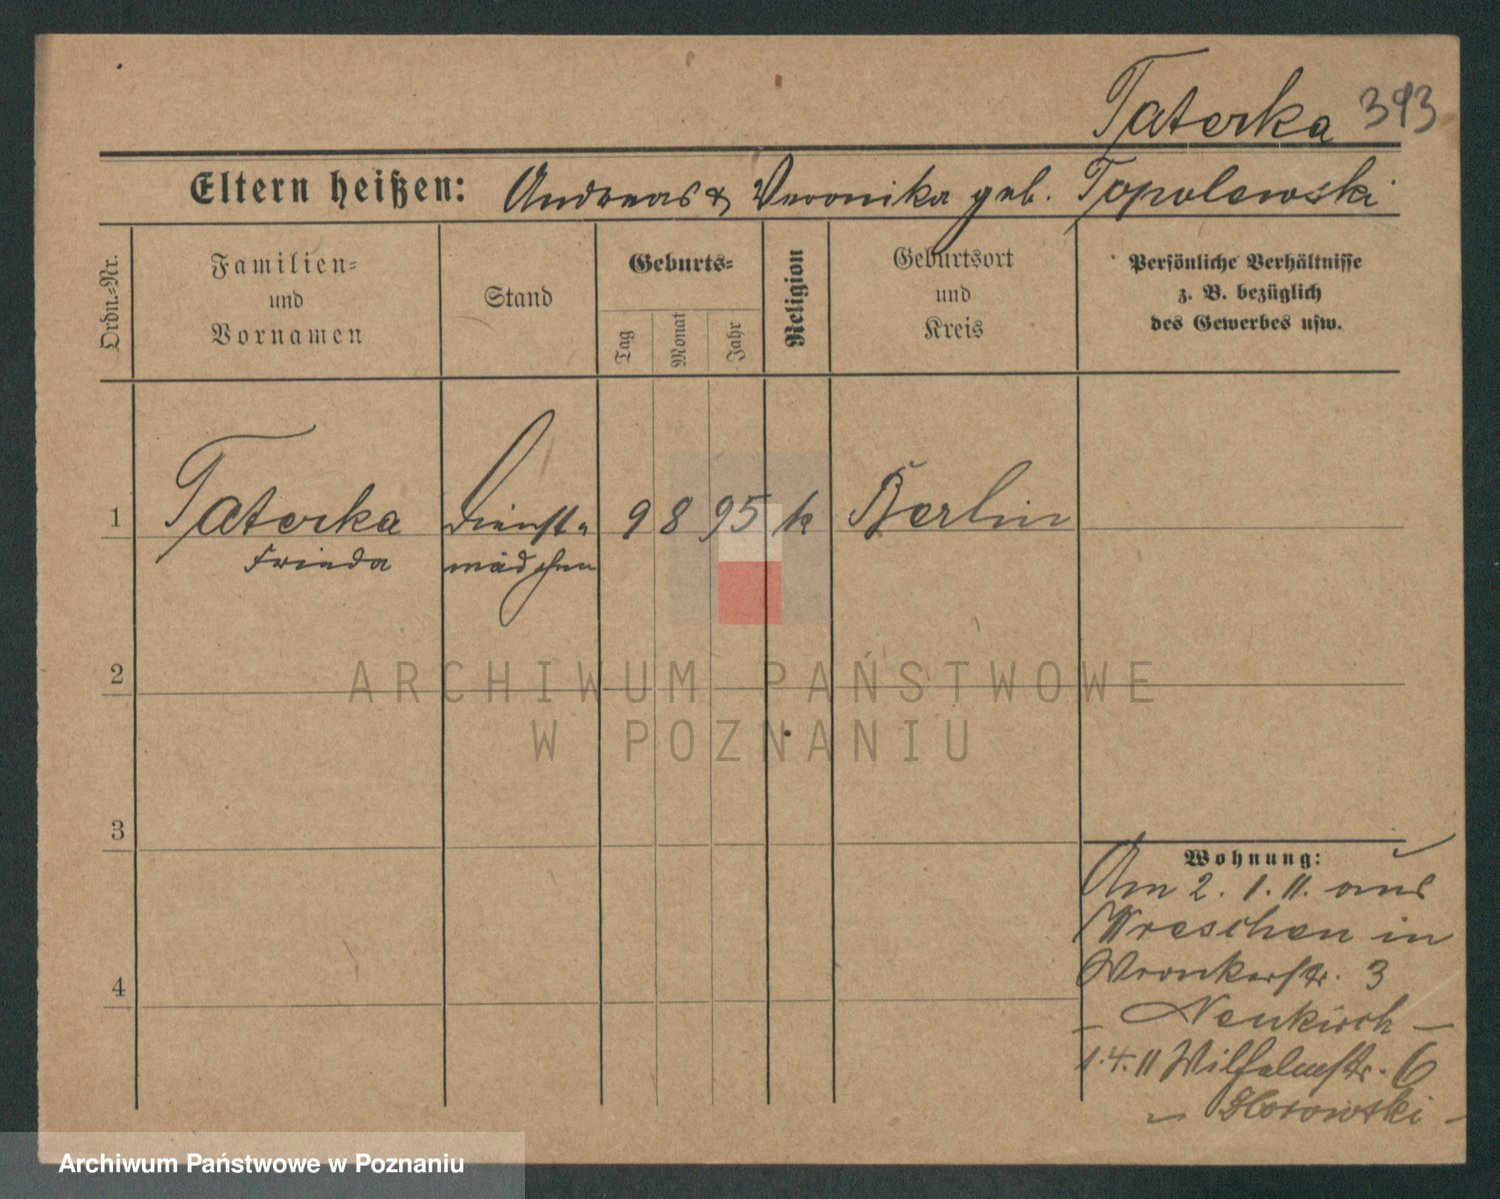 Taterka 393
Eltern heißen: Andreas & Veronika geb. Topolewski
Ordn.-Nr.
Familien-
und
Vornamen
Stand
Geburts-
Tag
Monat
Jahr
Religion
Geburtsort
und
Kreis
Persönliche Verhältnisse
z. B. bezüglich
des Gewerbes usw.
1 Taterka Dienst- 9 8 95 k Berlin
Frieda mädchen
2
3
4
Wohnung:
Am 2. 1. 11. aus
Wreschen in
Wronkerstr. 3
- Neukirch -
1. 4. 11 Wilhelmstr. 6
ARCHIWUM PAŃSTWOWE
W POZNANIU
Archiwum Państwowe w Poznaniu